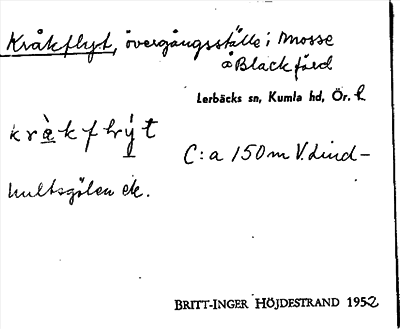 Kråkflyt, övergångsställe i Mosse
å Black fård
Lerbäcks sn, Kumla hd, Ör. l.
kràkflýt
C:a 150 m V. Lind-
hultsgölen etc.
BRITT-INGER HÖJDESTRAND 1952